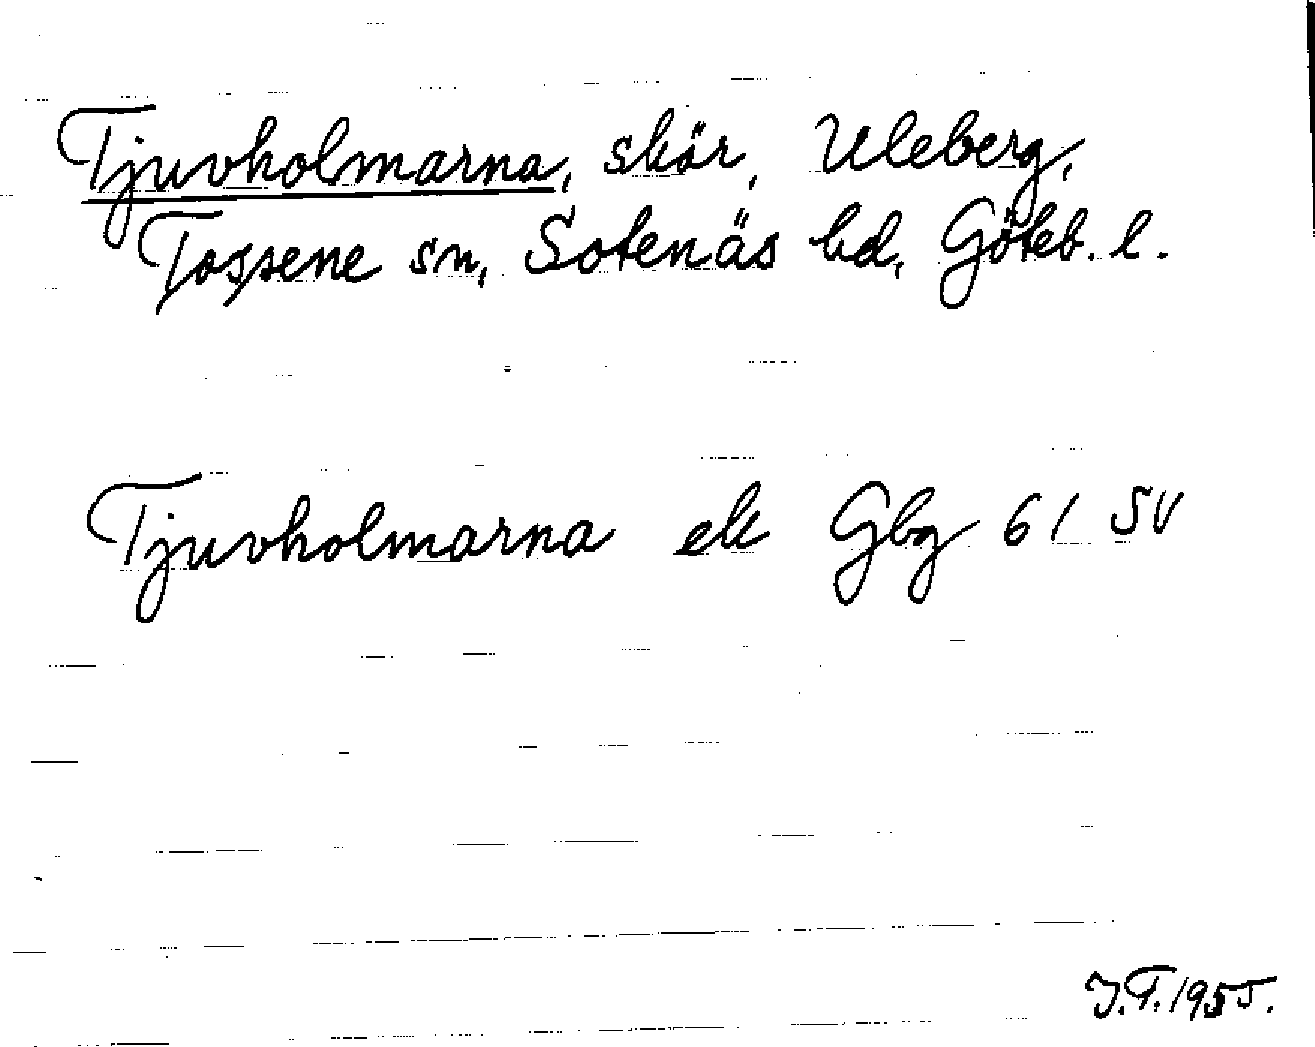 Tjuvholmarna, skär, Uleberg,
Tossene sn, Sotenäs hd, Göteb. l.
Tjuvholmarna ek Gbg 61 SV
J.T. 1955.